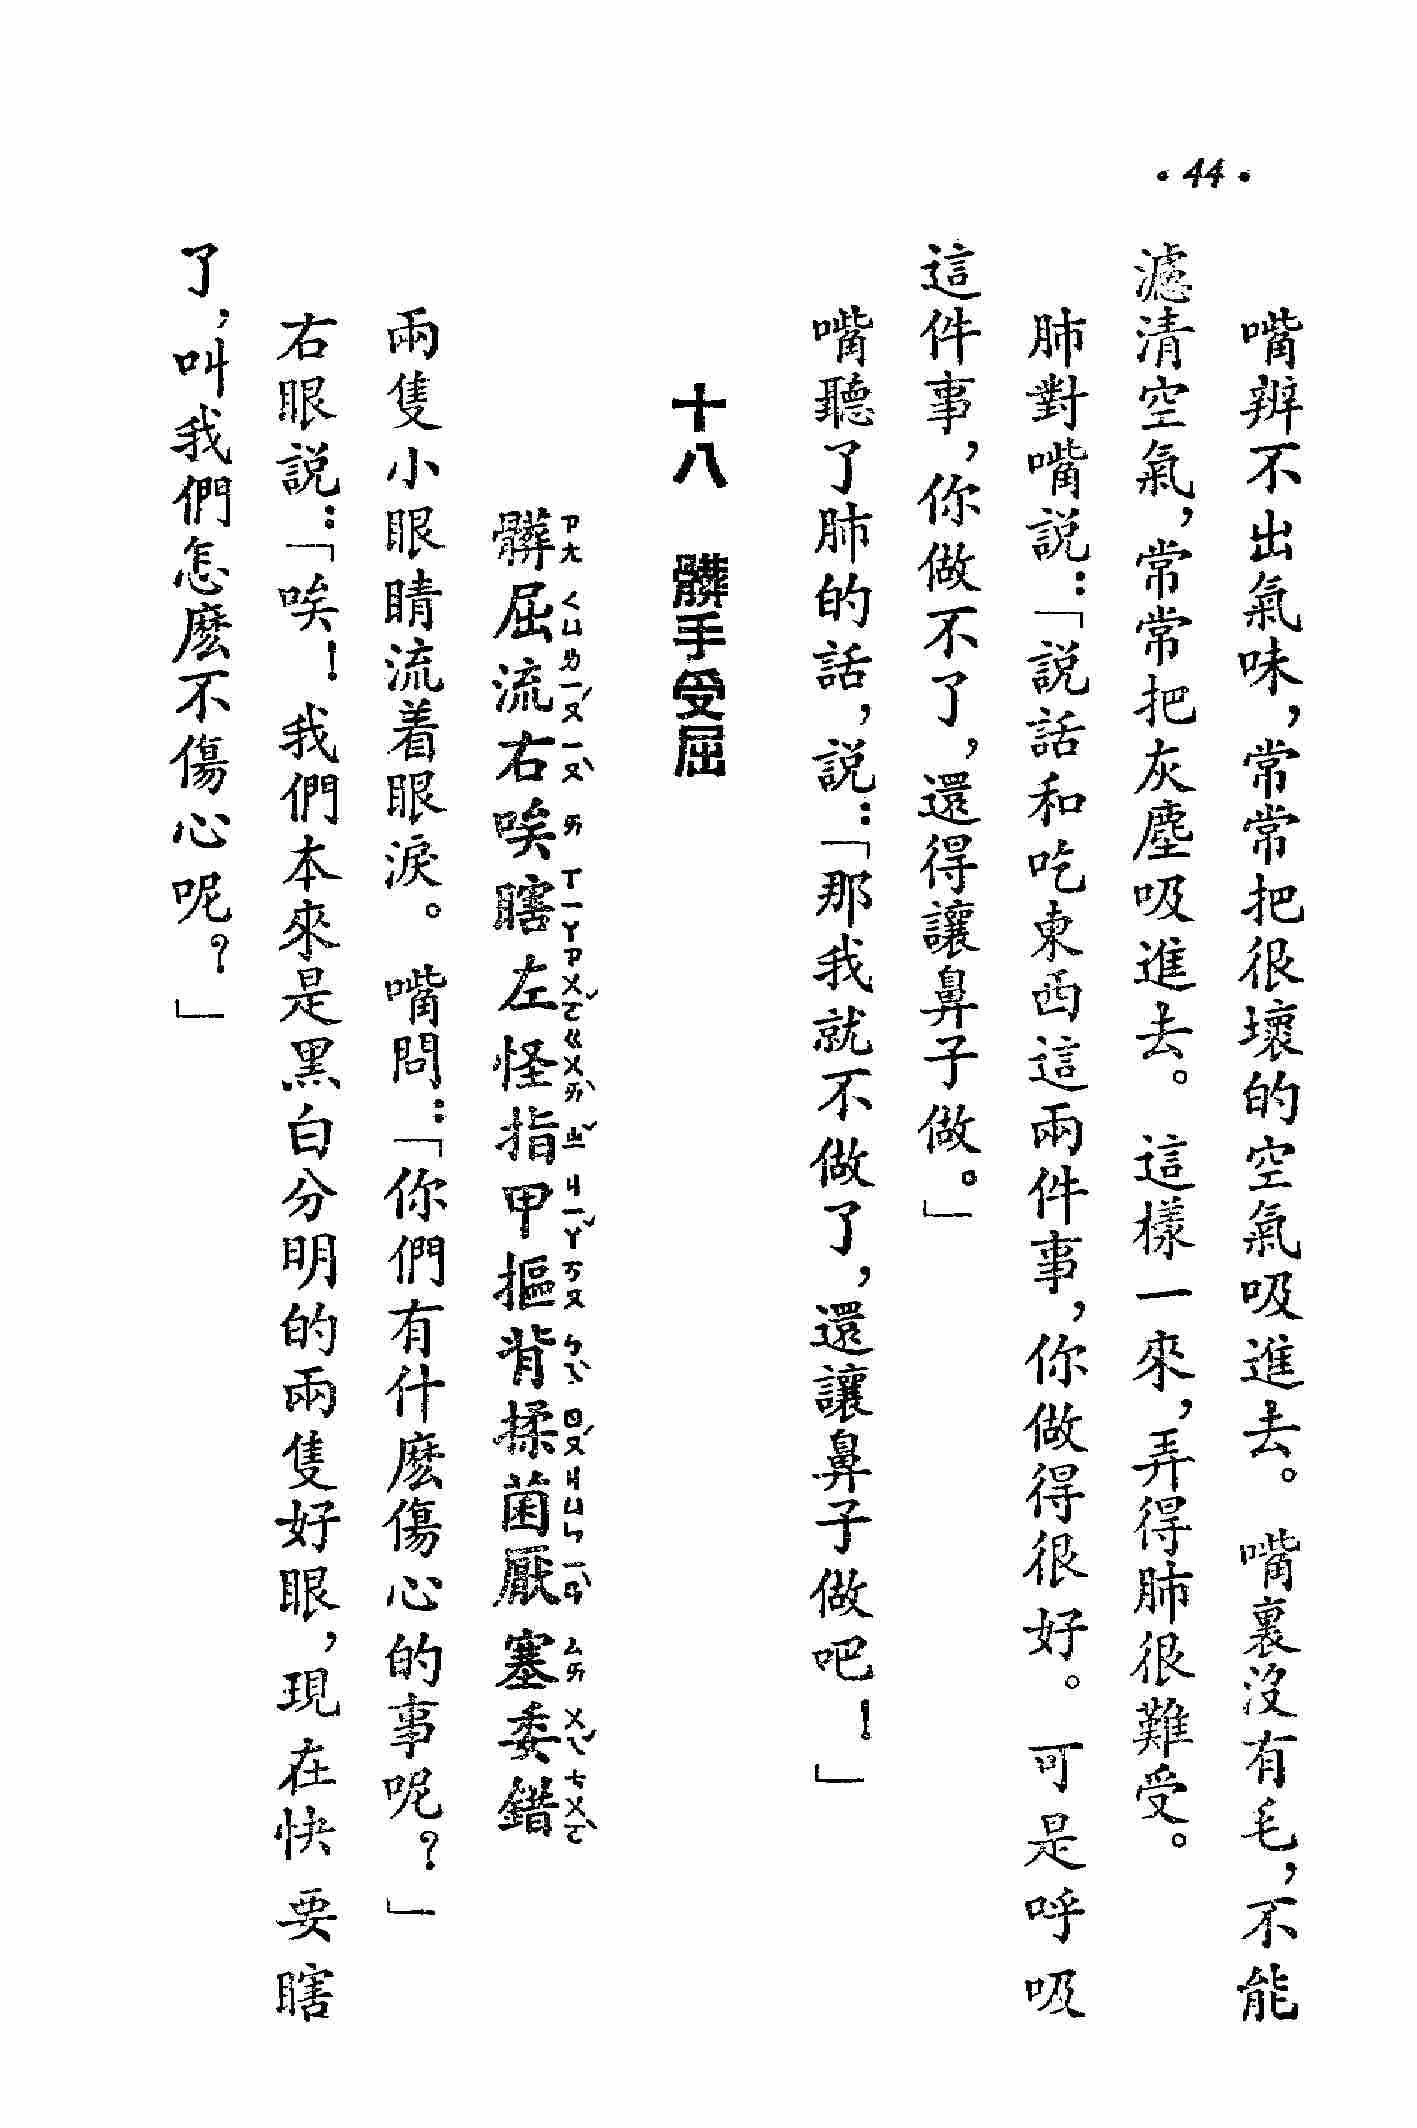 •44•
嘴辨不出氣味，常常把很壞的空氣吸進去。嘴裏沒有毛，不能
濾清空氣，常常把灰塵吸進去。這樣一來，弄得肺很難受。
肺對嘴説：「説話和吃東西這兩件事，你做得很好。可是呼吸
這件事，你做不了，還得讓鼻子做。」
嘴聽了肺的話，説：「那我就不做了，還讓鼻子做吧！」
十八　髒手受屈
髒ㄗㄤ屈ㄑㄩ流ㄌㄧㄡˊ右ㄧㄡˋ唉ㄞ瞎ㄒㄧㄚ左ㄗㄨㄛˇ怪ㄍㄨㄞˋ指ㄓˇ甲ㄐㄧㄚˇ摳ㄎㄡ背ㄅㄟˋ揉ㄖㄡˊ菌ㄐㄩㄣ厭ㄧㄢˋ塞ㄙㄞ委ㄨㄟˇ錯ㄘㄨㄛˋ
兩隻小眼睛流着眼淚。嘴問：「你們有什麽傷心的事呢？」
右眼説：「唉！我們本來是黑白分明的兩隻好眼，現在快要瞎
了，叫我們怎麽不傷心呢？」